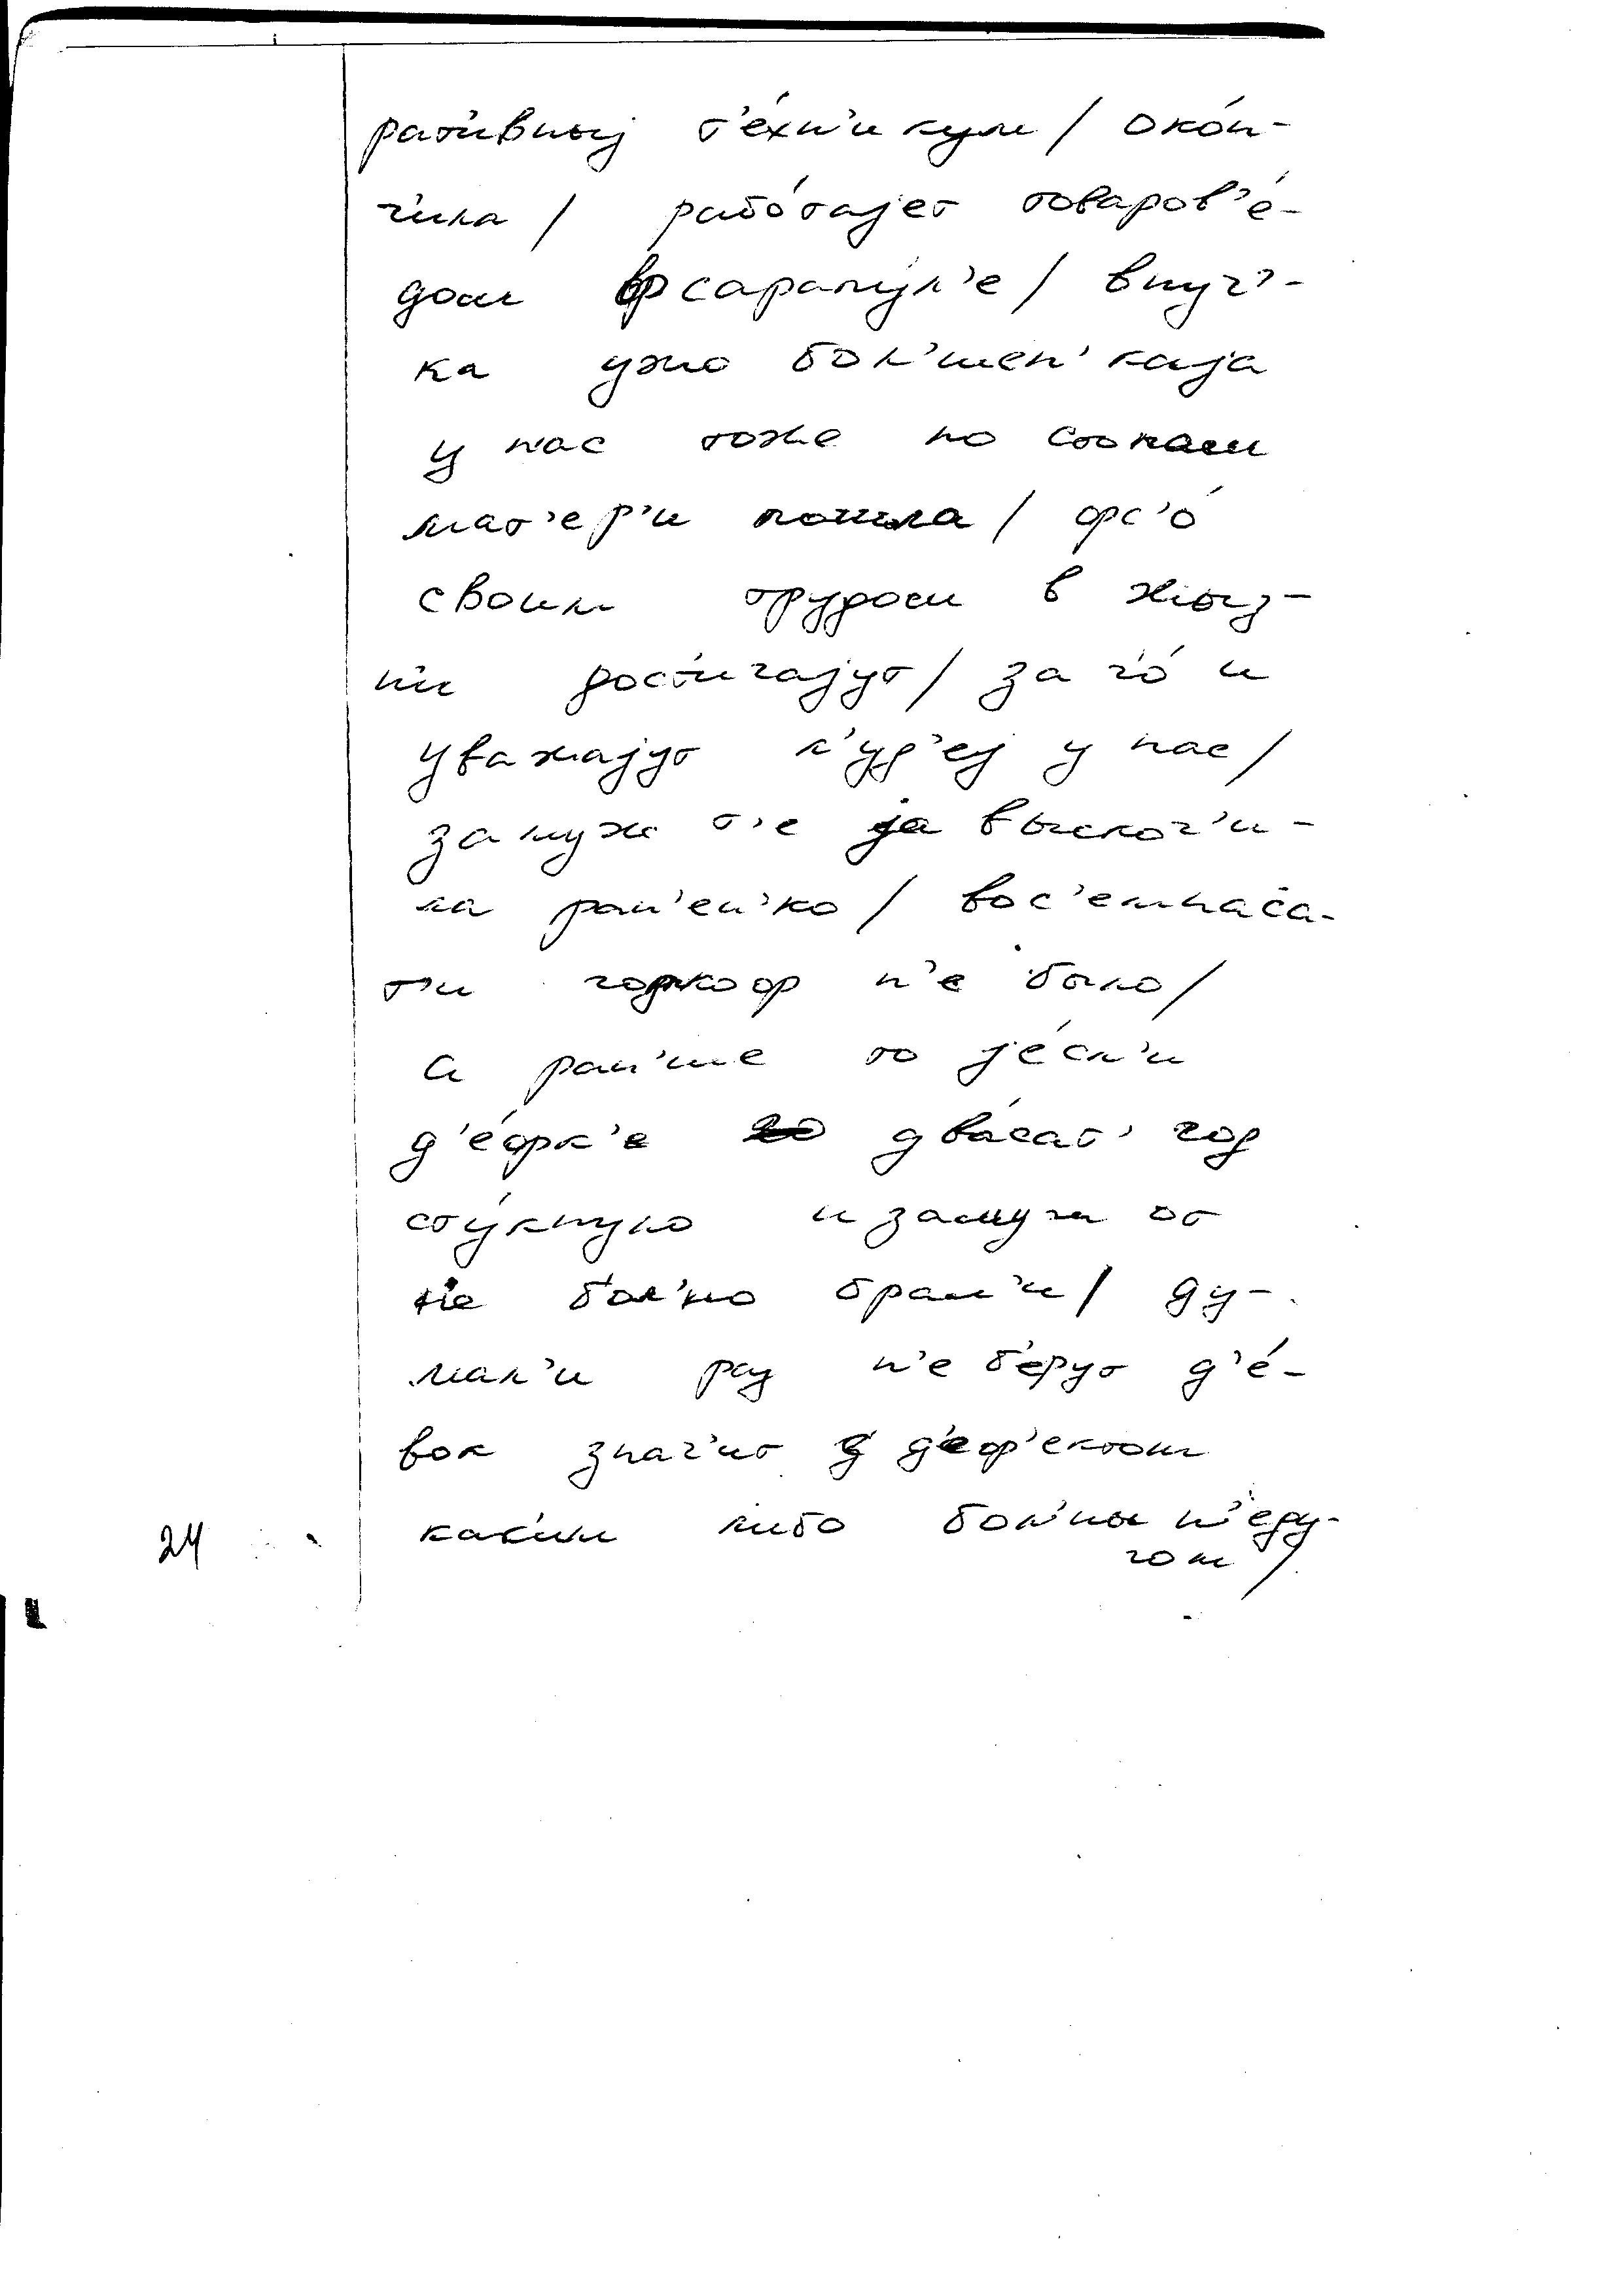 рат'ивныj т'е́хн'икум / око́н-
ч'ила / рабо́таjет товаров'е́-
дом ф сарапу́л'е / внуч'-
ка ужо бол'шен'каjа
у нас тоже по стопам
мат'ер'и пошла / фс'о́
своим трудом в жыз-
н'и дост'игаjут / за чо́ и
уважаjут л'уд'еj у нас /
замуж т'е jа выскоч'и-
ла ран'ен'ко / вос'емнаса-
т'и годкоф н'е было /
а ран'ше то jе́сл'и
д'е́фк'е два́сат' год
сту́кнуло и замуж от
н'е бол'но брал'и / ду-
мал'и раз н'е б'ерут д'е́-
вок знач'ит з д'еф'ектом
как'им либо бол'ны н'еду-
гом /
24